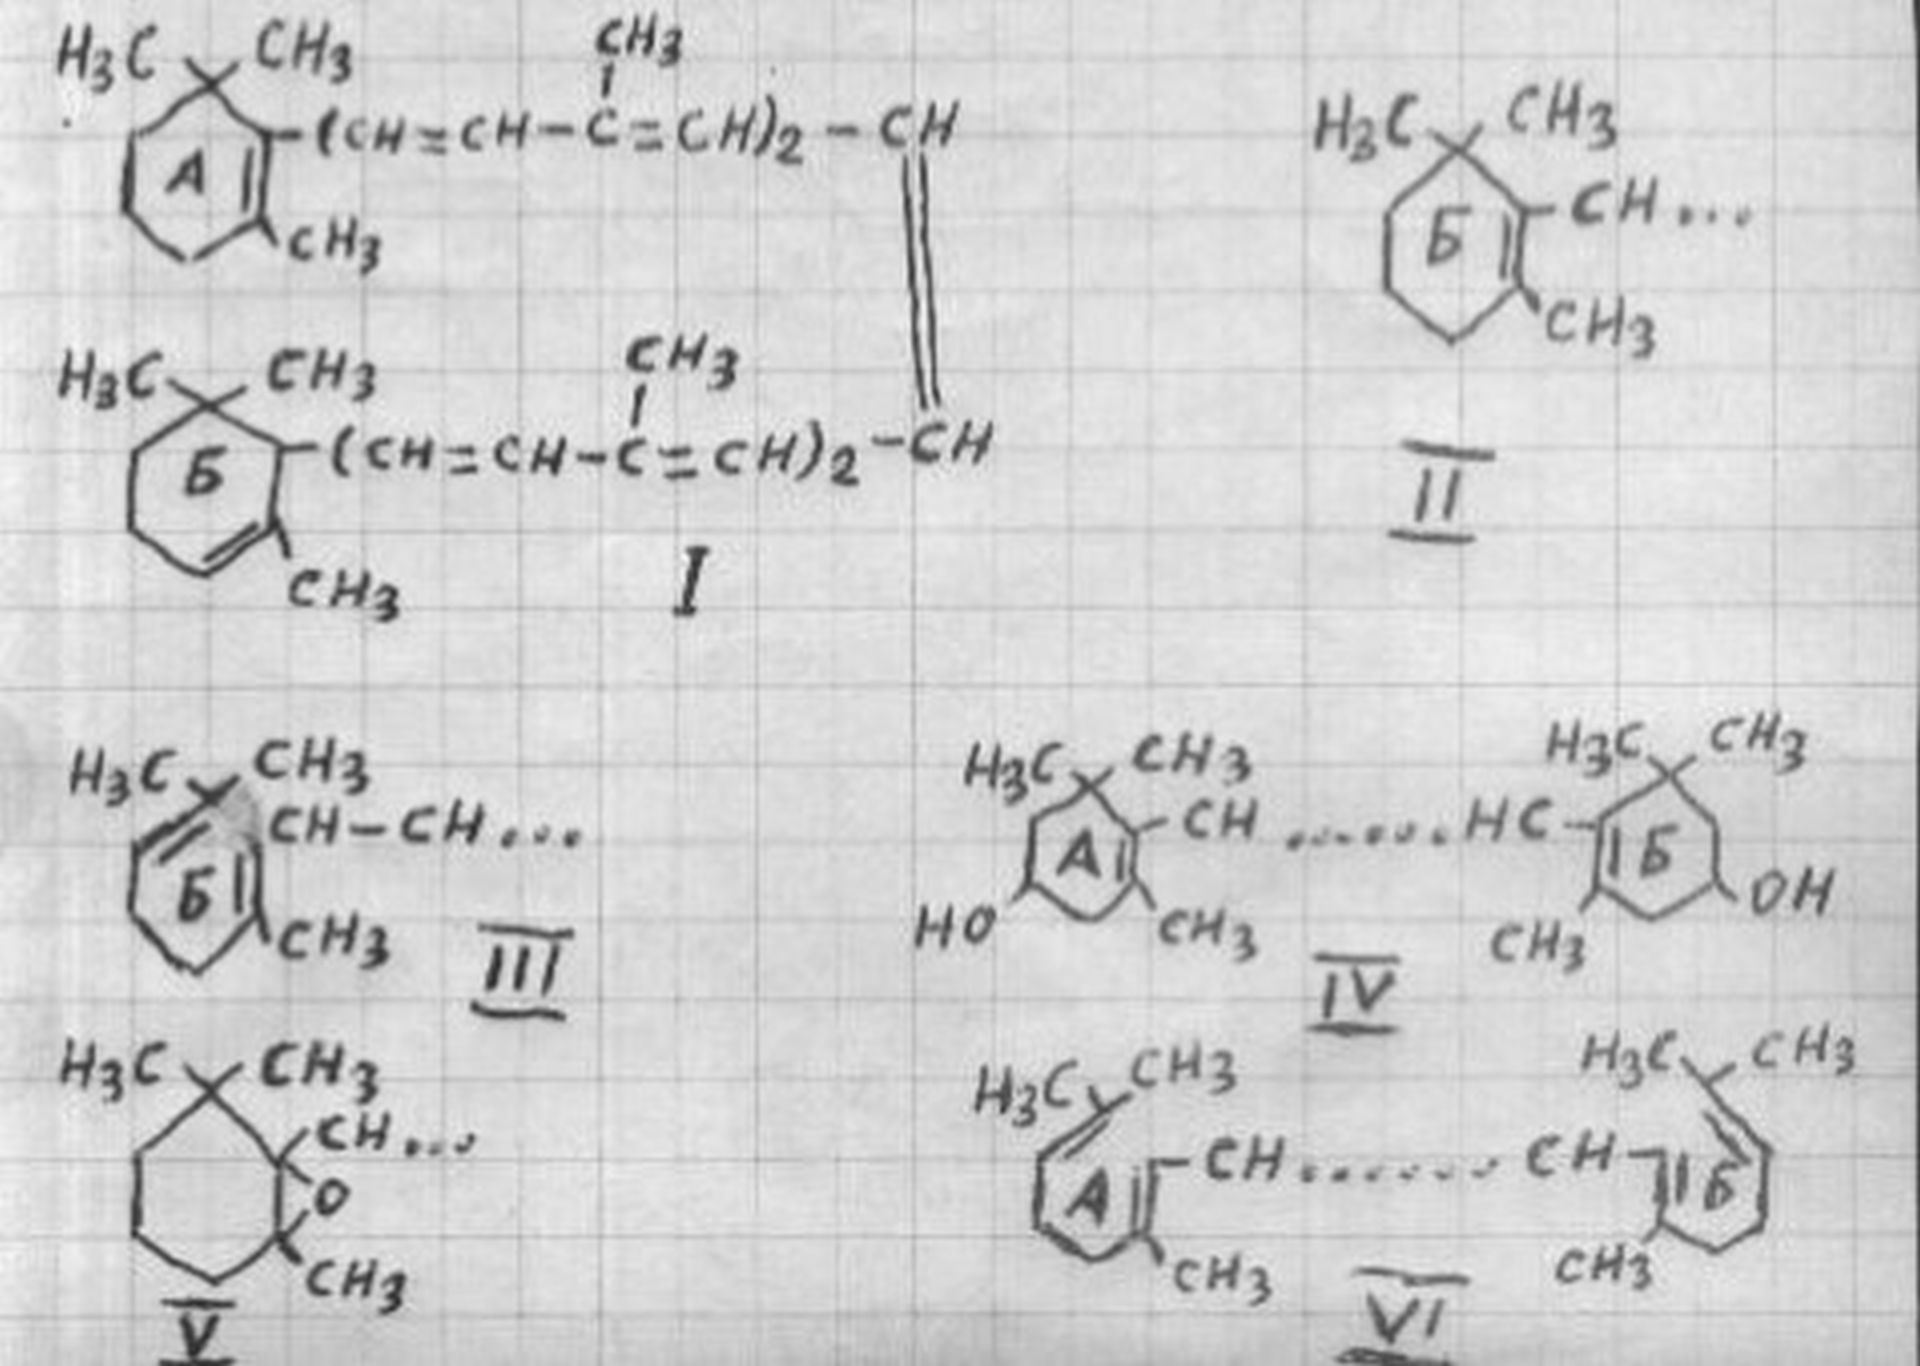 H3C CH3 CH3
А -(CH=CH-C=CH)2-CH
CH3
H3C CH3 CH3
Б -(CH=CH-C=CH)2-CH
CH3
I
H3C CH3
Б -CH...
CH3
II
H3C CH3
CH-CH...
Б
CH3
III
H3C CH3 H3C CH3
А -CH.......HC- Б
HO CH3 CH3 OH
IV
H3C CH3
CH...
O
CH3
V
H3C CH3 H3C CH3
А -CH.......CH- Б
CH3 CH3
VI